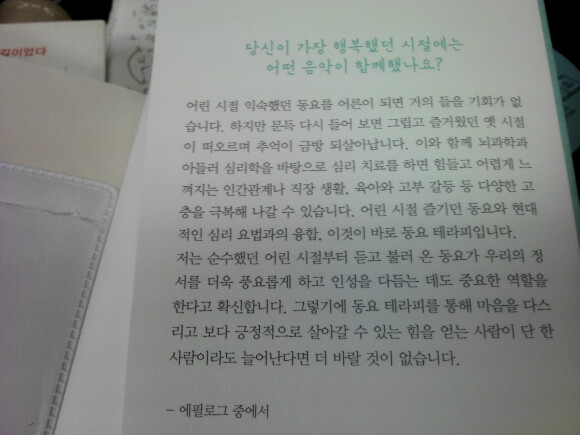 길이었다
당신이 가장 행복했던 시절에는
어떤 음악이 함께했나요?
어린 시절 익숙했던 동요를 어른이 되면 거의 들을 기회가 없
습니다. 하지만 문득 다시 들어 보면 그립고 즐거웠던 옛 시절
이 떠오르며 추억이 금방 되살아납니다. 이와 함께 뇌과학과
아들러 심리학을 바탕으로 심리 치료를 하면 힘들고 어렵게 느
껴지는 인간관계나 직장 생활, 육아와 고부 갈등 등 다양한 고
충을 극복해 나갈 수 있습니다. 어린 시절 즐기던 동요와 현대
적인 심리 요법과의 융합, 이것이 바로 동요 테라피입니다.
저는 순수했던 어린 시절부터 듣고 불러 온 동요가 우리의 정
서를 더욱 풍요롭게 하고 인성을 다듬는 데도 중요한 역할을
한다고 확신합니다. 그렇기에 동요 테라피를 통해 마음을 다스
리고 보다 긍정적으로 살아갈 수 있는 힘을 얻는 사람이 단 한
사람이라도 늘어난다면 더 바랄 것이 없습니다.
– 에필로그 중에서